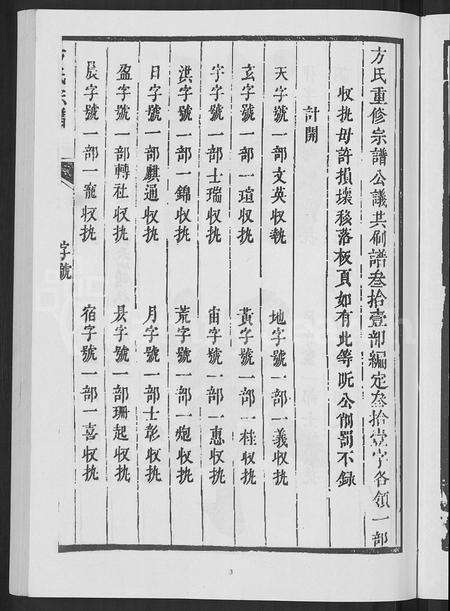 方氏重修宗譜公議共刷譜叁拾壹部編定叁拾壹字各領一部
收挑毋許損壞移落板頁如有此等呪公削罰不録
計開
天字號一部文英收執
地字號一部一義收挑
玄字號一部一瑄收挑
黃字號一部一桂收挑
宇字號一部士瑞收挑
宙字號一部一惠收挑
洪字號一部一錦收挑
荒字號一部一炮收挑
日字號一部麒通收挑
月字號一部士彰收挑
盈字號一部轉社收挑
昃字號一部珊起收挑
辰字號一部一寵收挑
宿字號一部一喜收挑
方氏宗譜
字號
3